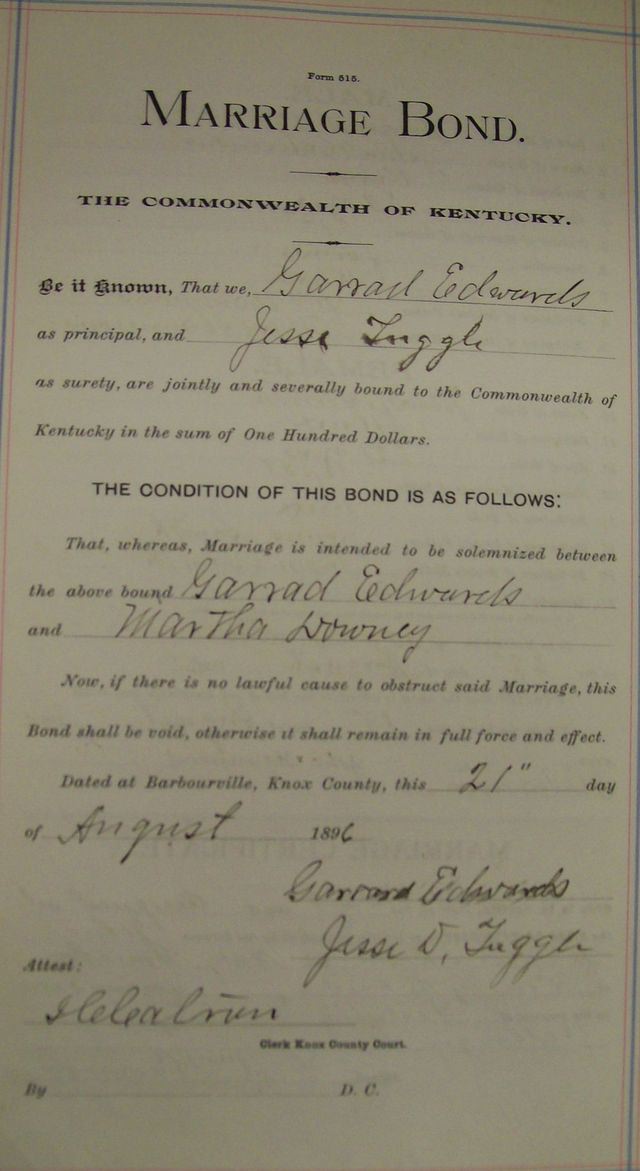 Form 515.
MARRIAGE BOND.
THE COMMONWEALTH OF KENTUCKY.
Be it Known, That we, Garrad Edwards
as principal, and Jesse Tuggle
as surety, are jointly and severally bound to the Commonwealth of
Kentucky in the sum of One Hundred Dollars.
THE CONDITION OF THIS BOND IS AS FOLLOWS:
That, whereas, Marriage is intended to be solemnized between
the above bound Garrad Edwards
and Martha Downey
Now, if there is no lawful cause to obstruct said Marriage, this
Bond shall be void, otherwise it shall remain in full force and effect.
Dated at Barbourville, Knox County, this 21" day
of August 1896
Garrard Edwards
Jesse D, Tuggle
Attest:
Clerk Knox County Court.
By D. C.